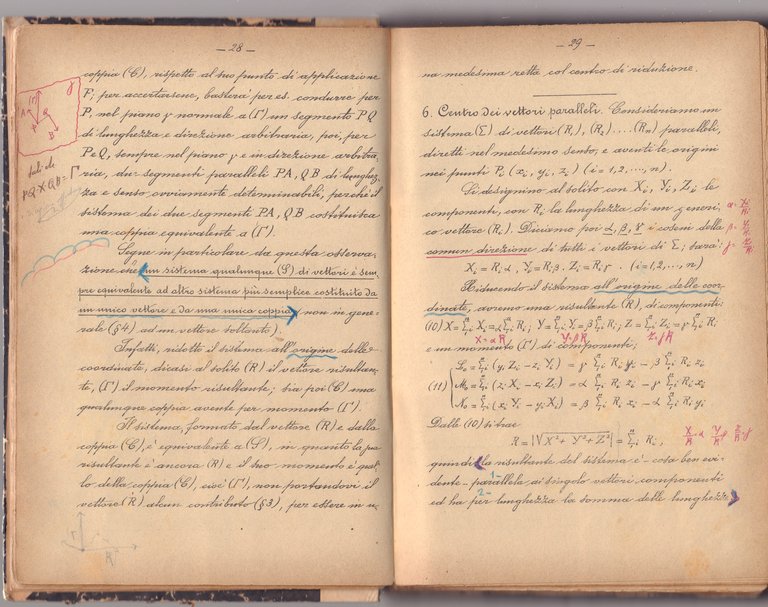 — 28 —
coppia (C), rispetto al suo punto di applicazione
P; per accertarsene, basterà per es. condurre per
P, nel piano γ normale a (Γ) un segmento PQ
di lunghezza e direzione arbitraria, poi, per
P e Q, sempre nel piano γ e in direzione arbitra,
ria, due segmenti paralleli PA, QB di lunghez,
za e senso ovviamente determinabili, perchè il
sistema dei due segmenti PA, QB costituisca
una coppia equivalente a (Γ).
Segue in particolare da questa osserva,
zione che un sistema qualunque (S) di vettori è sem,
pre equivalente ad altro sistema più semplice costituito da
un unico vettore e da una unica coppia, non in gene,
rale (§4) ad un vettore soltanto).
Infatti, ridotto il sistema all'origine delle
coordinate, dicasi al solito (R) il vettore risultan,
te, (Γ) il momento risultante; sia poi (C) una
qualunque coppia avente per momento (Γ).
Il sistema, formato dal vettore (R) e dalla
coppia (C), è equivalente a (S), in quanto la sua
risultante è ancora (R) e il suo momento è quel,
lo della coppia (C), cioè (Γ), non portandovi il
vettore (R) alcun contributo (§3), per essere in u,
γ
A
Q
P
B
PQ X QB = Γ
R
— 29 —
na medesima retta col centro di riduzione.
6. Centro dei vettori paralleli. Consideriamo un
sistema (Σ) di vettori (R₁), (R₂) .... (Rₙ) paralleli,
diretti nel medesimo senso, e aventi le origini
nei punti Pᵢ (xᵢ, yᵢ, zᵢ) (i = 1, 2, ..., n).
Si designino al solito con Xᵢ, Yᵢ, Zᵢ le
componenti, con Rᵢ la lunghezza di un generi,
co vettore (Rᵢ). Diciamo poi α, β, γ i coseni della
comun direzione di tutti i vettori di Σ; sarà:
Xᵢ = Rᵢ α, Yᵢ = Rᵢ β, Zᵢ = Rᵢ γ. (i = 1, 2, ..., n)
Riducendo il sistema all'origine delle coor,
dinate, avremo una risultante (R), di componenti:
(10) X = Σᵢ Xᵢ = α Σᵢ Rᵢ; Y = Σᵢ Yᵢ = β Σᵢ Rᵢ; Z = Σᵢ Zᵢ = γ Σᵢ Rᵢ
X = α R Y = β R Z = γ R
e un momento (Γ) di componenti:
L₀ = Σᵢ (yᵢ Zᵢ - zᵢ Yᵢ) = γ Σᵢ Rᵢ yᵢ - β Σᵢ Rᵢ zᵢ
(11) M₀ = Σᵢ (zᵢ Xᵢ - xᵢ Zᵢ) = α Σᵢ Rᵢ zᵢ - γ Σᵢ Rᵢ xᵢ
N₀ = Σᵢ (xᵢ Yᵢ - yᵢ Xᵢ) = β Σᵢ Rᵢ xᵢ - α Σᵢ Rᵢ yᵢ
Dalle (10) si trae
R = |√X² + Y² + Z²| = Σᵢ Rᵢ,
X/R = α Y/R = β Z/R = γ
quindi la risultante del sistema è - cosa ben evi,
dente - parallela ai singoli vettori componenti
ed ha per lunghezza la somma delle lunghezze
1-
2-